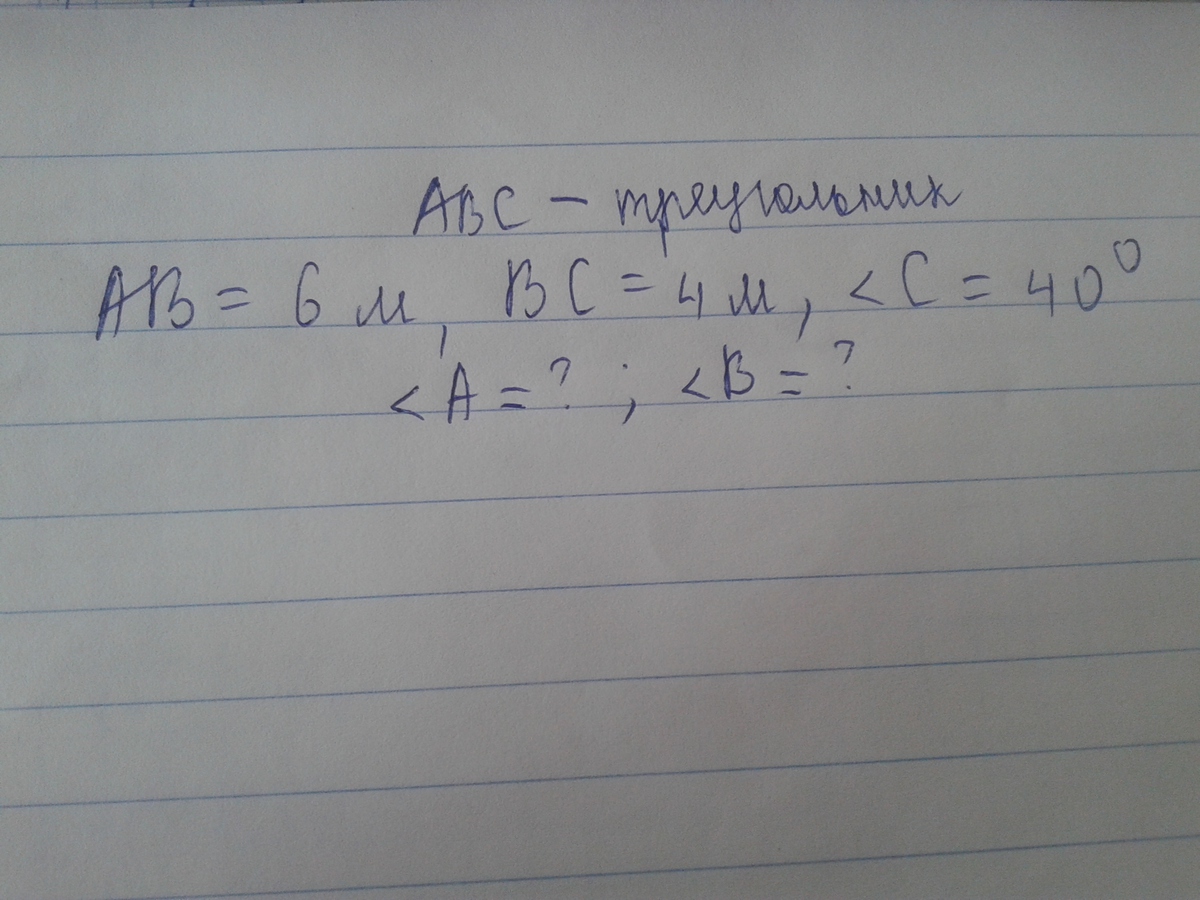 ABC - треугольник
AB = 6 м, BC = 4 м, <C = 40°
<A = ? ; <B = ?